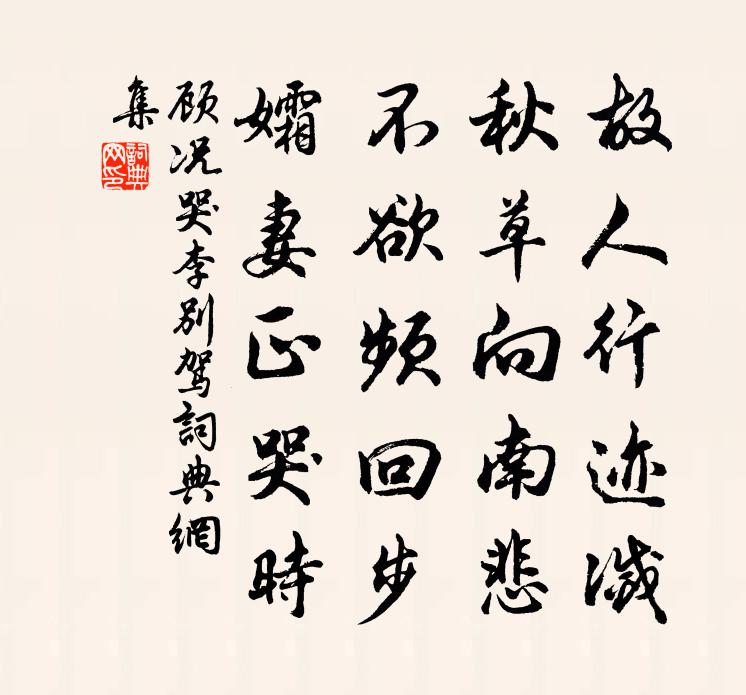 故人行迹滅
秋草向南悲
不欲频回步
孀妻正哭時
顾况哭李别驾詞典網
集
詞典
网印